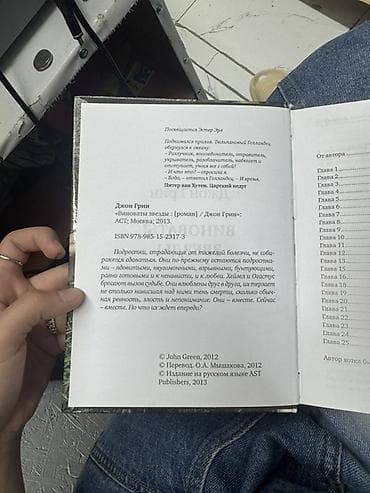 Посвящается Эстер Эрл
Поднимался прилив. Тюльпановый Голландец
обернулся к океану:
– Разлучник, воссоединитель, отравитель,
укрыватель, разоблачитель, набегает и
отступает, унося все с собой!
– И что это? – спросила я.
– Вода, – ответил Голландец. – И время.
Питер ван Хутен. Царский недуг
Джон Грин
«Виноваты звезды : [роман] / Джон Грин»:
АСТ; Москва; 2013
ISBN 978-985-15-2317-3
Подростки, страдающие от тяжелой болезни, не соби-
раются сдаваться. Они по-прежнему остаются подростка-
ми – ядовитыми, неугомонными, взрывными, бунтующими,
равно готовыми и к ненависти, и к любви. Хейзел и Огастус
бросают вызов судьбе. Они влюблены друг в друга, их терзает
не столько нависшая над ними тень смерти, сколько обыч-
ная ревность, злость и непонимание. Они – вместе. Сейчас
– вместе. Но что их ждет впереди?
© John Green, 2012
© Перевод. О.А. Мышакова, 2012
© Издание на русском языке AST
Publishers, 2013
От автора
Глава 1
Глава 2
Глава 3
Глава 4
Глава 5
Глава 6
Глава 7
Глава 8
Глава 9
Глава 10
Глава 11
Глава 12
Глава 13
Глава 14
Глава 15
Глава 16
Глава 17
Глава 18
Глава 19
Глава 20
Глава 21
Глава 22
Глава 23
Глава 24
Глава 25
Автор хотел бы